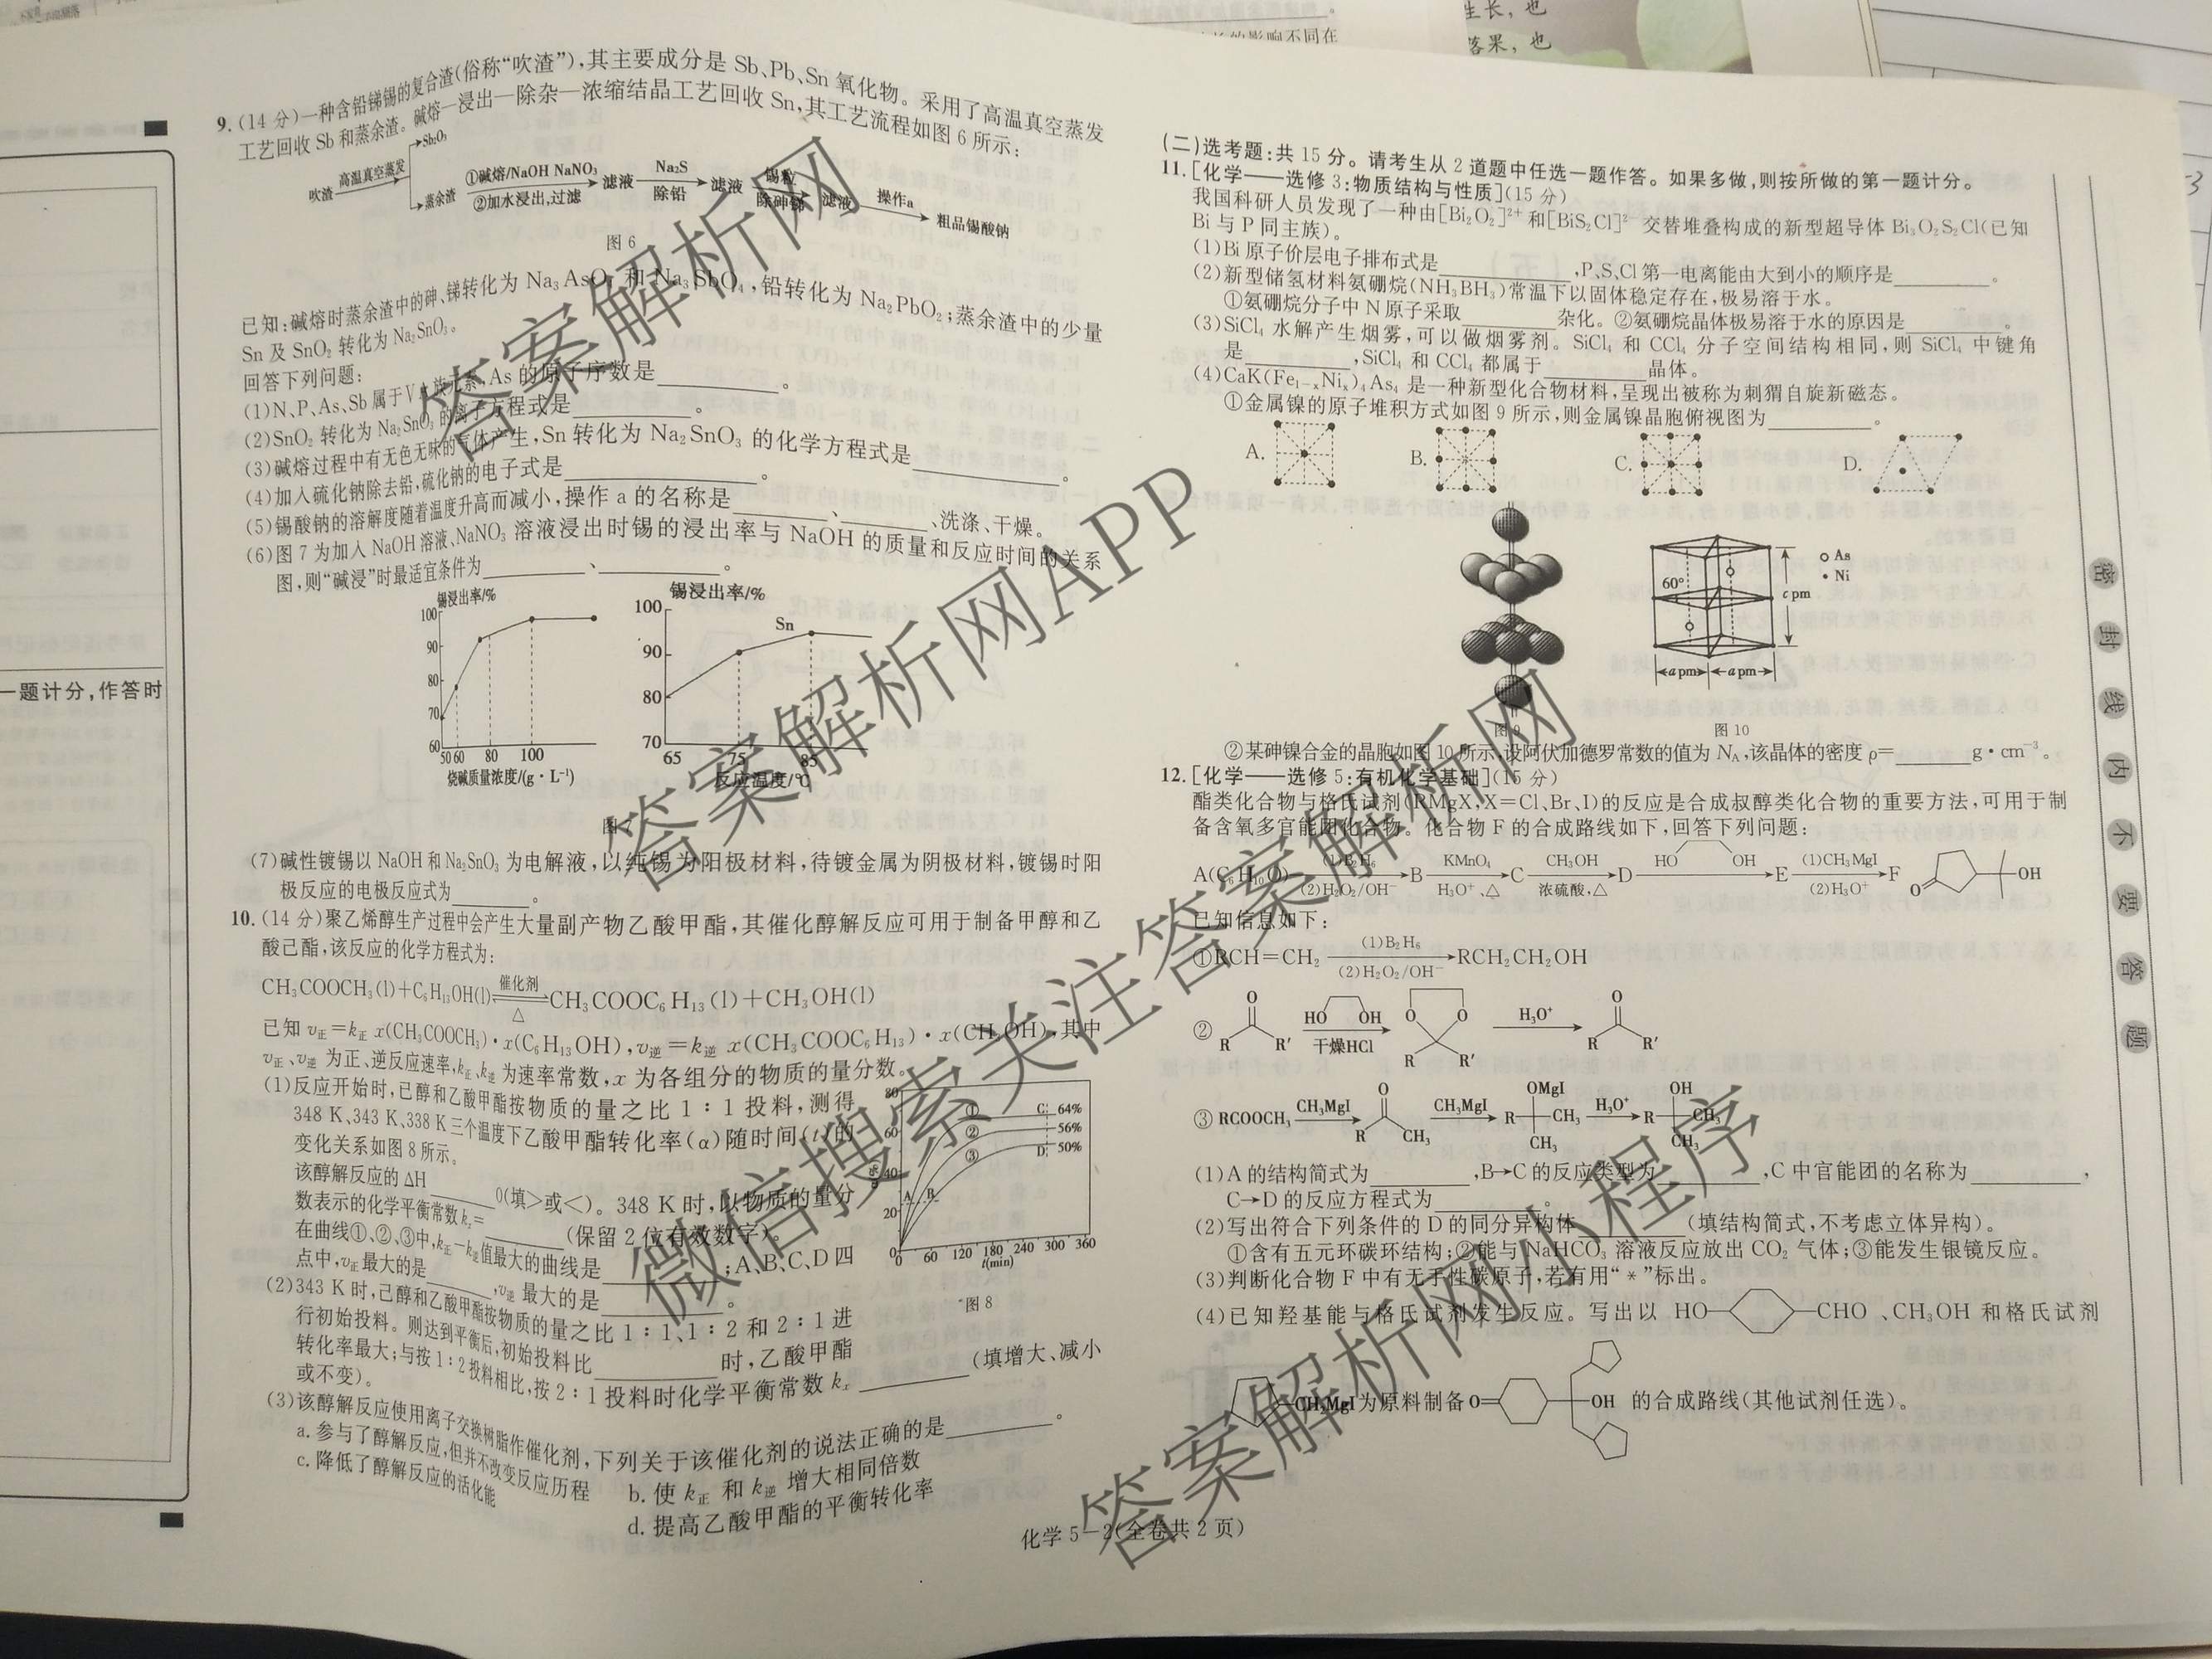 生长，也
落果，也
的影响不同在
一题计分，作答时
9.(14分)一种含铅锑锡的复合渣(俗称“吹渣”)，其主要成分是 Sb、Pb、Sn 氧化物。采用了高温真空蒸发
工艺回收 Sb 和蒸余渣。碱熔—浸出—除杂—浓缩结晶工艺回收 Sn，其工艺流程如图 6 所示：
吹渣 高温真空蒸发 Sb₂O₃
蒸余渣 ①碱熔/NaOH NaNO₃ ②加水浸出,过滤 滤液 Na₂S 除铅 滤液 锡粒 除砷锑 滤液 操作a 粗品锡酸钠
图 6
已知：碱熔时蒸余渣中的砷、锑转化为 Na₃AsO₄ 和 Na₃SbO₄，铅转化为 Na₂PbO₂；蒸余渣中的少量
Sn 及 SnO₂ 转化为 Na₂SnO₃。
回答下列问题：
(1)N、P、As、Sb 属于ⅤA族元素，As 的原子序数是________。
(2)SnO₂ 转化为 Na₂SnO₃ 的离子方程式是________。
(3)碱熔过程中有无色无味的气体产生，Sn 转化为 Na₂SnO₃ 的化学方程式是________。
(4)加入硫化钠除去铅，硫化钠的电子式是________。
(5)锡酸钠的溶解度随着温度升高而减小，操作 a 的名称是________、________、洗涤、干燥。
(6)图 7 为加入 NaOH 溶液、NaNO₃ 溶液浸出时锡的浸出率与 NaOH 的质量和反应时间的关系
图，则“碱浸”时最适宜条件为________、________。
锡浸出率/%
100
90
80
70
60
50 60 80 100
烧碱质量浓度/(g·L⁻¹)
锡浸出率/%
100
90
80
70
Sn
65 75 85
反应温度/℃
图 7
(7)碱性镀锡以 NaOH 和 Na₂SnO₃ 为电解液，以纯锡为阳极材料，待镀金属为阴极材料，镀锡时阳
极反应的电极反应式为________。
10.(14 分)聚乙烯醇生产过程中会产生大量副产物乙酸甲酯，其催化醇解反应可用于制备甲醇和乙
酸己酯，该反应的化学方程式为：
CH₃COOCH₃(l)+C₆H₁₃OH(l) 催化剂 △ ⇌ CH₃COOC₆H₁₃(l)+CH₃OH(l)
已知 v正=k正 x(CH₃COOCH₃)·x(C₆H₁₃OH)，v逆=k逆 x(CH₃COOC₆H₁₃)·x(CH₃OH)，其中
v正、v逆 为正、逆反应速率，k正、k逆 为速率常数，x 为各组分的物质的量分数。
(1)反应开始时，已醇和乙酸甲酯按物质的量之比 1：1 投料，测得
348 K、343 K、338 K 三个温度下乙酸甲酯转化率(α)随时间(t)的
变化关系如图 8 所示。
该醇解反应的 ΔH ________0(填>或<)。348 K 时，以物质的量分
数表示的化学平衡常数 kₓ=________(保留 2 位有效数字)。
在曲线①、②、③中，k正－k逆值最大的曲线是________；A、B、C、D 四
点中，v正 最大的是________，v逆 最大的是________。
80
60
40
20
0
① ② ③
A B
C 64%
56%
D 50%
0 60 120 180 240 300 360
t(min)
图 8
(2)343 K 时，己醇和乙酸甲酯按物质的量之比 1：1、1：2 和 2：1 进
行初始投料。则达到平衡后，初始投料比________时，乙酸甲酯
转化率最大；与按 1：2 投料相比，按 2：1 投料时化学平衡常数 kₓ________(填增大、减小
或不变)。
(3)该醇解反应使用离子交换树脂作催化剂，下列关于该催化剂的说法正确的是________。
a. 参与了醇解反应，但并不改变反应历程
b. 使 k正 和 k逆 增大相同倍数
c. 降低了醇解反应的活化能
d. 提高乙酸甲酯的平衡转化率
(二)选考题：共 15 分。请考生从 2 道题中任选一题作答。如果多做，则按所做的第一题计分。
11.[化学——选修 3：物质结构与性质](15 分)
我国科研人员发现了一种由[Bi₂O₂]²⁺和[BiS₂Cl]²⁻交替堆叠构成的新型超导体 Bi₃O₂S₂Cl(已知
Bi 与 P 同主族)。
(1)Bi 原子价层电子排布式是________，P、S、Cl 第一电离能由大到小的顺序是________。
(2)新型储氢材料氨硼烷(NH₃BH₃)常温下以固体稳定存在，极易溶于水。
①氨硼烷分子中 N 原子采取________杂化。②氨硼烷晶体极易溶于水的原因是________。
(3)SiCl₄ 水解产生烟雾，可以做烟雾剂。SiCl₄ 和 CCl₄ 分子空间结构相同，则 SiCl₄ 中键角
是________，SiCl₄ 和 CCl₄ 都属于________晶体。
(4)CaK(Fe₁₋ₓNiₓ)₄As₄ 是一种新型化合物材料，呈现出被称为刺猬自旋新磁态。
①金属镍的原子堆积方式如图 9 所示，则金属镍晶胞俯视图为________。
A.
B.
C.
D.
60°
○ As
• Ni
c pm
a pm a pm
图 9
图 10
②某砷镍合金的晶胞如图 10 所示，设阿伏加德罗常数的值为 Nᴀ，该晶体的密度 ρ=________g·cm⁻³。
12.[化学——选修 5：有机化学基础](15 分)
酯类化合物与格氏试剂(RMgX，X=Cl、Br、I)的反应是合成叔醇类化合物的重要方法，可用于制
备含氧多官能团化合物。化合物 F 的合成路线如下，回答下列问题：
A(C₆H₁₀O) (1)B₂H₆ (2)H₂O₂/OH⁻ B KMnO₄ H₃O⁺、△ C CH₃OH 浓硫酸,△ D HO OH E (1)CH₃MgI (2)H₃O⁺ F O OH
已知信息如下：
①RCH=CH₂ (1)B₂H₆ (2)H₂O₂/OH⁻ RCH₂CH₂OH
② O R R′ HO OH 干燥HCl O O R R′ H₃O⁺ O R R′
③ RCOOCH₃ CH₃MgI O R CH₃ CH₃MgI OMgI R CH₃ CH₃ H₃O⁺ OH R CH₃ CH₃
(1)A 的结构简式为________，B→C 的反应类型为________，C 中官能团的名称为________，
C→D 的反应方程式为________。
(2)写出符合下列条件的 D 的同分异构体________(填结构简式，不考虑立体异构)。
①含有五元环碳环结构；②能与 NaHCO₃ 溶液反应放出 CO₂ 气体；③能发生银镜反应。
(3)判断化合物 F 中有无手性碳原子，若有用“*”标出。
(4)已知羟基能与格氏试剂发生反应。写出以 HO CHO 、CH₃OH 和格氏试剂
CH₂MgI为原料制备 O= OH 的合成路线(其他试剂任选)。
化学 5－2(全卷共 2 页)
密封线内不要答题
答案解析网
答案解析网APP
微信搜索关注答案解析网
答案解析网小程序